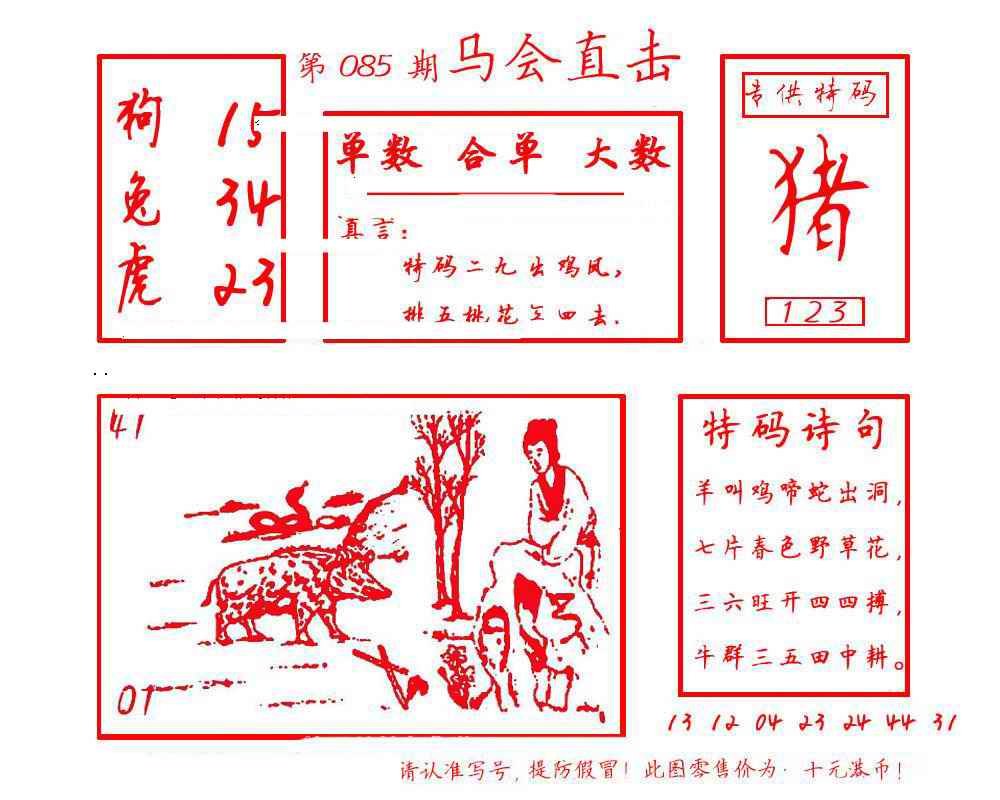 第 085 期 马会直击
狗 15
兔 34
虎 23
单数 合单 大数
真言：
特码二九出鸡凤，
排五桃花三四去.
专供特码
猪
123
41
01
特码诗句
羊叫鸡啼蛇出洞，
七片春色野草花，
三六旺开四四搏，
牛群三五田中耕。
13 12 04 23 24 44 31
请认准写号，提防假冒！此图零售价为·十元港币！